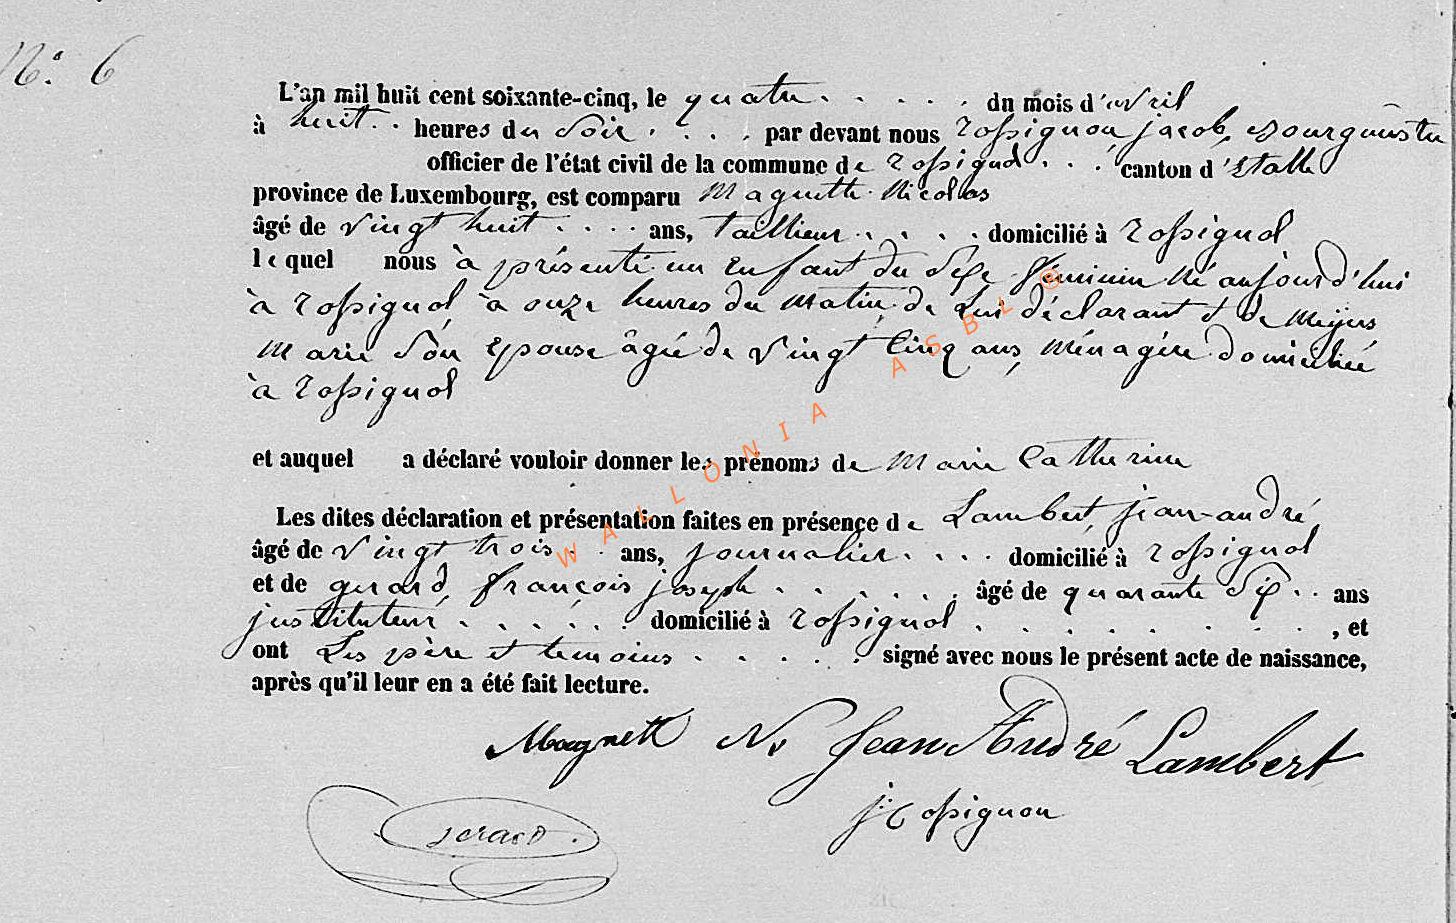 N° 6
L'an mil huit cent soixante-cinq, le quatre . . . . . du mois d'avril
à huit . . heures du soir . . . . par devant nous rossignon jacob, Bourguemstre
officier de l'état civil de la commune de rossignol . . . canton d'Etalle
province de Luxembourg, est comparu Magnette Nicolas
âgé de vingt huit . . . . ans, tailleur . . . . domicilié à rossignol
lequel nous à présenté un Enfant du sexe féminin Né aujourd'hui
à rossignol à onze heures du matin de Lui déclarant et de Meijers
Marie Son Epouse âgée de vingt Cinq ans, Ménagère domiciliée
à rossignol
et auquel a déclaré vouloir donner les prénoms de Marie Catherine
Les dites déclaration et présentation faites en présence de Lambert, jean-andré
âgé de vingt trois . . ans, journalier . . . . domicilié à rossignol
et de gerard, françois joseph . . . . . . âgé de quarante Six . . ans
justituteur . . . . . . domicilié à rossignol . . . . . . . . , et
ont Les père et temoins . . . . . signé avec nous le présent acte de naissance,
après qu'il leur en a été fait lecture.
Magnette N. Jean André Lambert
j rossignon
gerard
WALLONIA ASBL ®